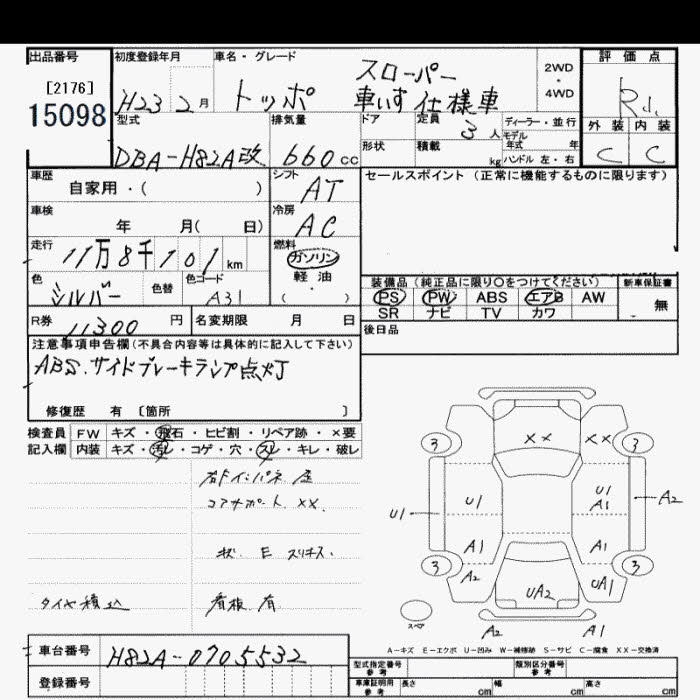 出品番号 初度登録年月 車名・グレード 評価点
[2176]
15098
H23 2月 トッポ スローパー 2WD
車いす仕様車 ・
4WD
外装 内装
C C
型式 排気量 ドア 定員 3人 ディーラー・並行
モデル年式 年
DBA-H82A改 660cc 形状 積載 kg ハンドル 左・右
車歴 シフト セールスポイント(正常に機能するものに限ります)
自家用・( ) AT
車検 冷房
年 月( 日) AC
走行 燃料
11万8千101km ガソリン
色 色替 色コード 軽油
シルバー A31 ( )
装備品(純正品に限り○をつけてください) 新車保証書
PS PW ABS エアB AW 無
SR ナビ TV カワ
R券 11300円 名変期限 月 日 後日品
注意事項申告欄(不具合内容等は具体的に記入して下さい)
ABS.サイドブレーキランプ点灯
修復歴 有 〔箇所 〕
検査員 FW キズ・飛石・ヒビ割・リペア跡・×要
記入欄 内装 キズ・汚レ・コゲ・穴・スレ・キレ・破レ
コアサポート XX.
タイヤ積込 看板有
XX XX
3 3
U1 U1 U1 A1 A2
A1 A1
3 3
A2 UA2 UA1
スペア A2 A1
A-キズ E-エクボ U-凹み W-補修跡 S-サビ C-腐食 XX-交換済
車台番号 H82A-0705532
登録番号
型式指定番号 参考 類別区分番号 参考
車庫証明用 参考 長さ cm 幅 cm 高さ cm